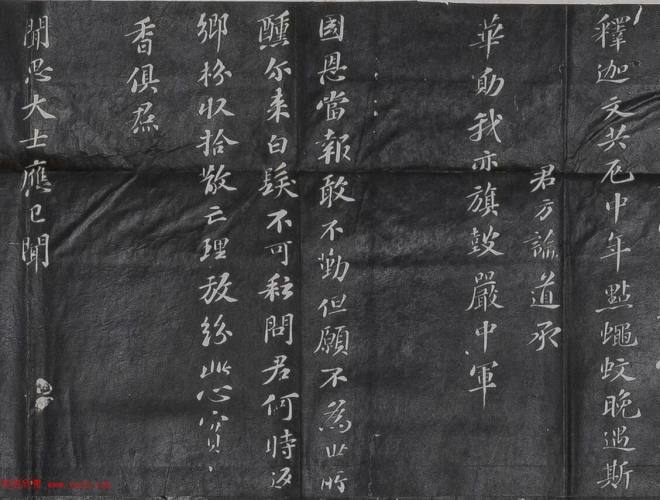 釋迦文共厄中年點蠅蚊晚遇斯
君方論道承
華勛我亦旗鼓嚴中軍
國恩當報敢不勤但願不為世所
醺尔来白髮不可耘問君何時返
鄉枌収拾散亡理放紛此心實
香俱焄
聞思大士應已聞